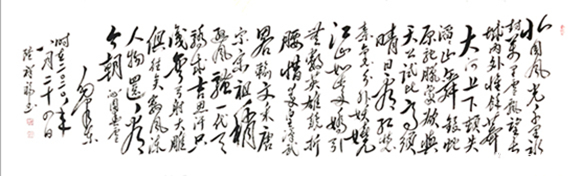 北国风光千里冰
封万里雪飘望长
城内外惟馀莽莽
大河上下顿失
滔滔山舞银蛇
原驰腊象欲与
天公试比高须
晴日看红装
素裹分外妖娆
江山如此多娇引
无数英雄竞折
腰惜秦皇汉武
略输文采唐
宗宋祖稍
逊风骚一代天
骄成吉思汗只
识弯弓射大雕
俱往矣数风流
人物还看
今朝 沁园春雪
毛泽东
时在二〇〇六年
八月二十四日